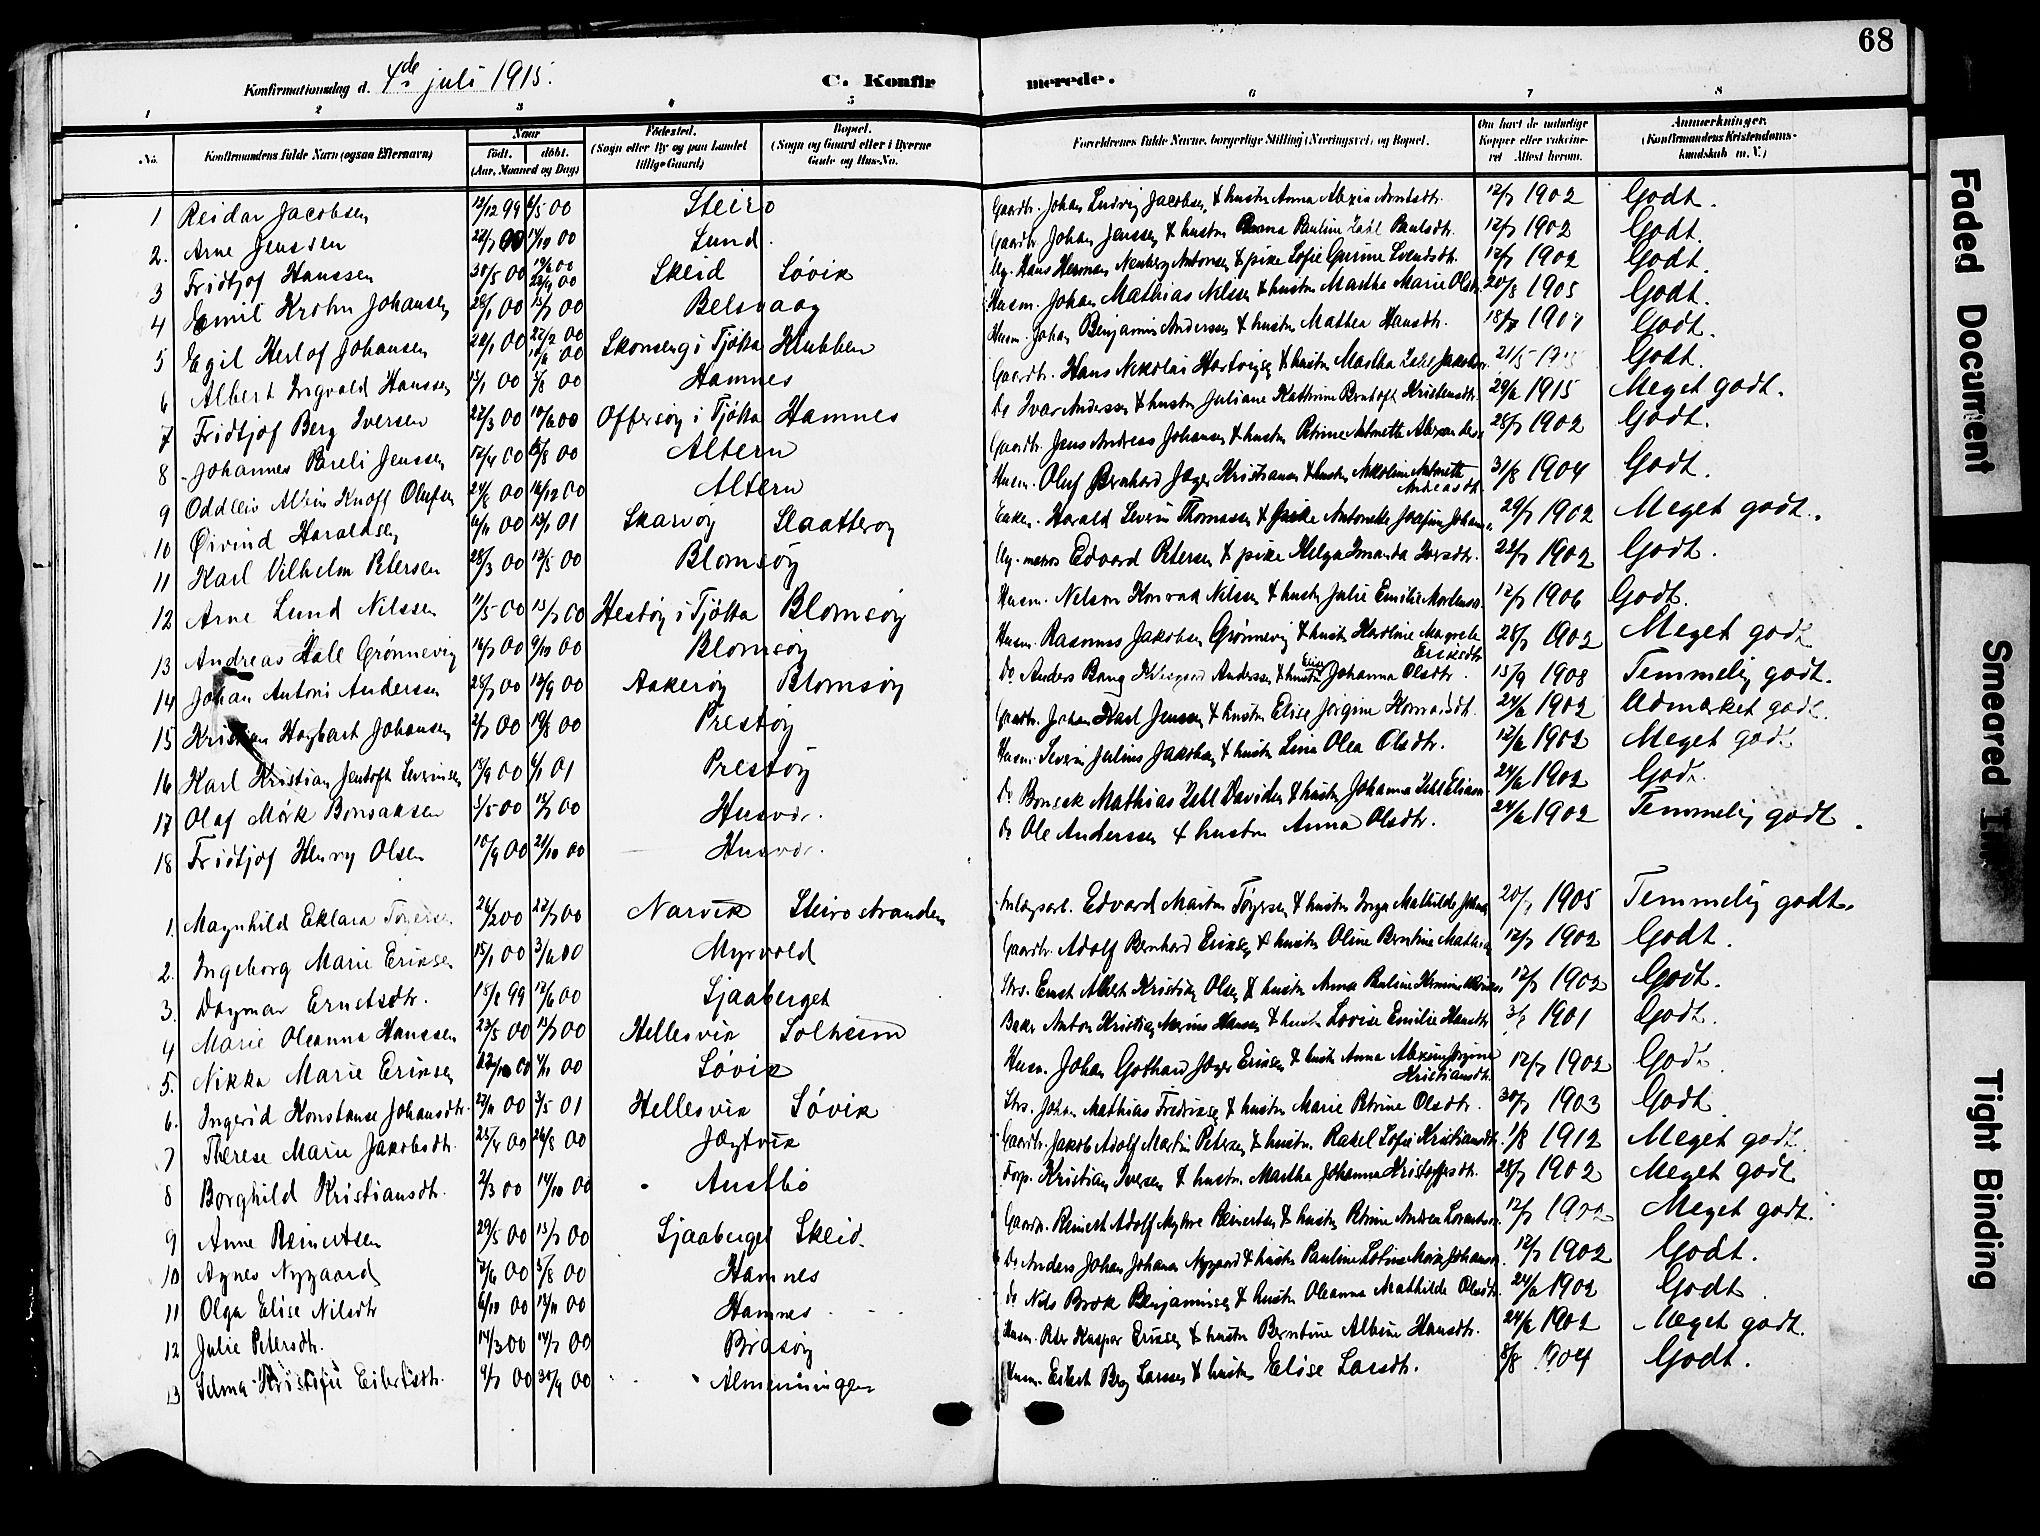 68
Konfirmationsdag d. 4de juli 1915.
C. Konfirmerede.
1 2 3 4 5 6 7 8
No. Konfirmandens fulde Navn (ogsaa Efternavn) Naar født. døbt. (Aar, Maaned og Dag) Fødested. (Sogn eller By og paa Landet tillige Gaard) Bopæl. (Sogn og Gaard eller i Byerne Gade og Hus-No. Forældrenes fulde Navne, borgerlige Stilling (Næringsvei) og Bopæl. Om havt de naturlige Kopper eller vakcineret Attest herom. Anmærkninger. (Konfirmandens Kristendomskundskab m. V.)
1 Reidar Jacobsen 12/12 99 6/5 00 Steiro Gaardbr. Johan Ludvig Jacobsen & hustru Anna Alexia Arntsdtr. 12/7 1902 Godt.
2. Arne Jenssen 17/10 00 Lund. Gaardbr. Johan Jenssen & hustru Pauline Paulsdtr. 12/7 1902 Godt.
3 Fridtjof Hanssen 30/5 00 23/9 00 Skeid Søvik Ug. Hans Herman Antonsen & pike Sofie Gurine Svendsdtr. 12/7 1902 Godt.
4 Emil Krohn Johansen 28/1 00 15/7 00 Belsvaag Husm. Johan Mathias Nilsen & hustru Martha Marie Olsdtr. 20/8 1905 Godt.
5 Egil Herlof Johansen 00 22/2 00 Skonseng i Tjøtta Klubben Husm. Johan Benjamin Anderssen & hustru Mathea Hansdtr. 1907 Godt.
6 Albert Ingvald Hanssen 13/1 00 5/8 00 Hamnes Gaardbr. Hans Nikolai Hartvigsen & hustru Martha 21/5 Godt.
7 Fridtjof Berg Iversen 27/3 00 10/6 00 Offersøy i Tjøtta Hamnes Do Ivar Anderssen & hustru Juliane Kathrine Bentoft Kristensdtr. 29/6 1915 Meget godt.
8 Johannes Pareli Jenssen 12/4 00 5/8 00 Altern Gaardbr. Jens Andreas Johansen & hustru Petrine Antonette 28/7 1902 Godt.
9 Oddleiv Albin Knoff Olufsen 24/8 00 16/12 00 Altern Husm. Oluf Bernhard Jæger Kristiansen & hustru Nikoline Antonette Andreasdtr. 31/8 1904 Godt.
10 Øivind Haraldsen 6/11 00 13/1 01 Skarvøy Slaatterøy Enkem. Harald Severin Thomassen & pike Antonette Josefine 29/7 1902 Meget godt.
11 Karl Vilhelm Petersen 28/3 00 13/5 00 Blomsøy Ug. Edvard Petersen & pike Helga Imanda Iversdtr. 22/7 1902 Godt.
12 Arne Lund Nilssen 11/5 00 15/7 00 Hestøy i Tjøtta Blomsøy Husm. Nelson Konrad Nilssen & hustru Julie Emilie 12/7 1906 Godt.
13 Andreas Hall Grønnevig 16/7 00 9/10 00 Blomsøy Husm. Rasmus Jakobsen Grønnevig & hustru Karoline Margrete Eriksdtr. 28/7 1902 Meget godt
14 Johan Antoni Andersen 28/7 00 12/9 00 Aakerøy Blomsøy Do Anders Bang Anderssen & hustru Johanna Olsdtr. 15/9 1908 Temmelig godt.
15 Kristian Hagbart Johansen 2/7 00 19/8 00 Prestøy Gaardbr. Johan Karl Jenssen & hustru Elise Jørgine Konradsdtr. 24/6 1902 Udmærket godt.
16 Karl Kristian Jentoft Severinsen 15/9 00 6/1 01 Prestøy Husm. Severin Julius Jakobsen & hustru Lina Olea Olsdtr. 12/6 1902 Meget godt.
17 Olaf Mørk Bonsaksen 5/5 00 00 Husvær. Do Bonsak Mathias Zahl Davidsen & hustru Johanna Zahl 24/6 1902 Godt.
18 Fridtjof Henry Olsen 10/9 00 21/10 00 Husvær. Do Ole Anderssen & hustru Anna Olsdtr. 24/6 1902 Temmelig godt.
1. Magnhild Eklara 26/2 00 22/7 00 Narvik Steirostranden Anlægsarb. Edvard Martin Tøgersen & hustru Inga Mathilde 1905 Temmelig godt.
2. Ingeborg Marie Eriksen 15/1 00 3/6 00 Myrvold Gaardbr. Adolf Bernhard Eriksen & hustru Oline Berntine 12/7 1902 Godt.
3. Dagmar Ernstsdtr. 99 17/6 00 Sjaaberget Strs. Ernst Albert Kristian Olsen & hustru Anna Pauline 12/7 1902 Godt.
4 Marie Oleanna Hanssen 23/5 00 15/7 00 Hellesvik Solheim Baker Anton Kristian Marius Hansen & hustru Lovise Emilie Hansdtr 1901 Godt.
5. Nikka Marie Eriksen 22/10 00 4/11 00 Søvik Husm. Johan Gothard Jæger Eriksen & hustru Anna Jørgine Kristiansdtr. 12/7 1902 Godt
6. Ingerid Konstanse Johansdtr. 27/11 00 5/5 01 Hellesvik Søvik Strs. Johan Mathias Fredriksen & hustru Marie Petrine Olsdtr. 30/7 1903 Godt
7 Therese Marie Jakobsdtr. 25/4 00 26/8 00 Jægtvik Gaardbr. Jakob Adolf Martin Petersen & hustru Rakel Sofie Kristiansdtr. 1/8 1912 Meget godt
8 Borghild Kristiansdtr. 2/3 00 14/10 00 Austbø Forp. Kristian Iversen & hustru Martha Johanna Kristoffersdtr. 28/7 1902 Meget godt
9 Anne Reinertsen 29/5 00 15/7 00 Sjaaberget Skeid. Gaardbr. Reinert Adolf Reinertsen & hustru Petrine Andrea 12/7 1902 Meget godt.
10 Agnes Nygaard 7/6 00 5/8 00 Hamnes Do Anders Johan Johansen Nygaard & hustru Pauline 12/7 1902 Godt.
11 Olga Elise Nilsdtr 6/10 00 00 Hamnes Do Nils Brok Benjaminsen & hustru Oleanna Mathilde Olsdtr. 24/6 1902 Godt.
12 Julie Petersdtr. 14/3 00 14/7 00 Brasøy Husm. Peter Kaspar Eriksen & hustru Berntine Albine Hansdtr. 24/6 1902 Meget godt.
13 Selma Eilertsdtr. 9/7 00 30/9 00 Almenningen Husm. Eilert Berg Larssen & hustru Elise Larsdtr. 8/8 1904 Godt.
Faded Document
Smeared Ink
Tight Binding